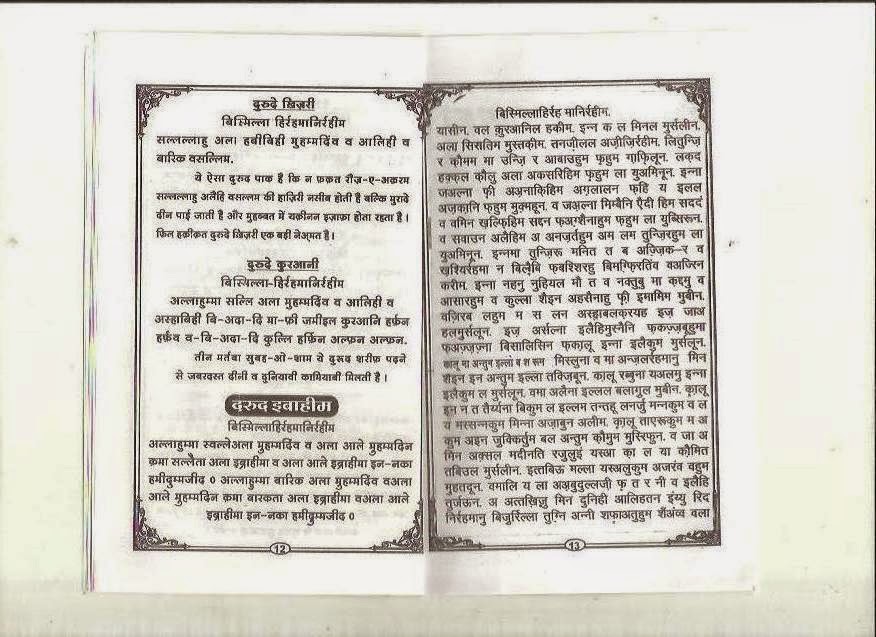 दुरुदे ख़िज़री
बिस्मिल्ला हिर्रहमानिर्रहीम
सल्लल्लाहु अला हबीबिही मुहम्मदिंव व आलिही व
बारिक वसल्लिम.
ये ऐसा दुरुद पाक है कि न फ़क़त रौज़-ए-अकरम
सल्लल्लाहु अलैहि वसल्लम की हाज़िरी नसीब होती है बल्कि मुरादे
दीन पाई जाती है और मुहब्बत में यक़ीनन इज़ाफ़ा होता रहता है।
फ़िल हक़ीक़त दुरुदे ख़िज़री एक बड़ी नेअ़मत है।
दुरुदे कुरआनी
बिस्मिल्ला-हिर्रहमानिर्रहीम
अल्लाहुम्मा सल्लि अला मुहम्मदिंव व आलिही व
अस्हाबिही बि-अदा-दि मा-फ़ी जमीइल क़ुरआनि हर्फ़न
हर्फ़ंव व-बि-अदा-दि कुल्लि हर्फ़िन अल्फ़न अल्फ़न.
तीन मर्तबा सुबह-ओ-शाम ये दुरूद शरीफ़ पढ़ने
से जबरदस्त दीनी व दुनियावी कामियाबी मिलती है।
दरुद इब्राहीम
बिस्मिल्लाहिर्रहमानिर्रहीम
अल्लाहुम्मा स्वल्लेअला मुहम्मदिंव व अला आले मुहम्मदिन
क़मा सल्लैता अला इब्राहीमा व अला आले इब्राहीमा इन-नका
हमीदुम्मजीद 0 अल्लाहुम्मा बारिक अला मुहम्मदिंव वअला
आले मुहम्मदिन क़मा बारकता अला इब्राहीमा वअला आले
इब्राहीमा इन-नका हमीदुम्मजीद 0
12
बिस्मिल्लाहिर्रह मानिर्रहीम.
यासीन. वल क़ुरआनिल हकीम. इन्न क ल मिनल मुर्सलीन.
अला सिरातिम मुस्तक़ीम. तनज़ीलल अज़ीज़िर्रहीम. लितुन्ज़ि
र क़ौमम मा उन्ज़ि र आबाउहुम फ़हुम ग़ाफ़िलून. लक़द
हक़्क़ल क़ौलु अला अकसरिहिम फ़हुम ला युअमिनून. इन्ना
जअल्ना फ़ी अअ़नाक़िहिम अग़लालन फ़हि य इलल
अज़क़ानि फ़हुम मुक़्महून. व जअ़ल्ना मिम्बैनि ऐदी हिम सददं
व वमिन ख़ल्फ़िहिम सद्दन फ़अग़्शैनाहुम फ़हुम ला युब्सिरून.
व सवाउन अलैहिम अ अनज़र्तहुम अम लम तुन्ज़िरहुम ला
युअमिनून. इन्नमा तुन्ज़िरू मनित त ब अज़्ज़िक-र व
ख़शिर्यरहमा न बिल्ग़ैबि फ़बश्शिरहु बिमग़्फ़िरतिंव वअज्रिन
करीम. इन्ना नहनु नुहियल मौ त व नक्तुबु मा क़द्दमु व
आसारहुम व कुल्ला शैइन अहसैनाहु फ़ी इमामिम मुबीन.
वज़्रिब लहुम म स लन अस्हाबलक़रयह इज़ जाअ
हलमुर्सलून. इज़ अर्सल्ना इलैहिमुस्नैनि फ़कज़्ज़बूहुमा
फ़अज़्ज़ज़्ना बिसालिसिन फ़क़ालू इन्ना इलैकुम मुर्सलून.
क़ालू मा अन्तुम इल्ला ब श रूम मिस्लुना व मा अन्ज़लर्रहमानु मिन
शैइन इन अन्तुम इल्ला तक्ज़िबून. क़ालू रब्बुना यअलमु इन्ना
इलैकुम ल मुर्सलून. वमा अलैना इल्लल बलाग़ुल मुबीन. क़ालू
इन न त तैर्य्यना बिकुम ल इल्लम तन्तहू लनर्जु मन्नकुम व ल
य मस्सन्नकुम मिन्ना अज़ाबुन अलीम. क़ालू ताएरुकुम म अ
कुम अइन ज़ुक्किर्तुम बल अन्तुम क़ौमुम मुस्रिफून. व जा अ
मिन अक़्सल मदीनति रजुलुइं यस्आ क़ा ल या क़ौमित
तबिउल मुर्सलीन. इत्तबिऊ मल्ला यस्अलुकुम अजरंव वहुम
मुहतदून. वमालि य ला अअ़बुदुल्लज़ी फ़ त र नी व इलैहि
तुर्जऊन. अ अत्तख़िज़ु मिन दुनिही आलिहतन इंय्यु रिद
निर्रहमानु बिज़ुर्रिल्ला तुग़्नि अन्नी शफ़ाअतुहुम शैअंव्व वला
13